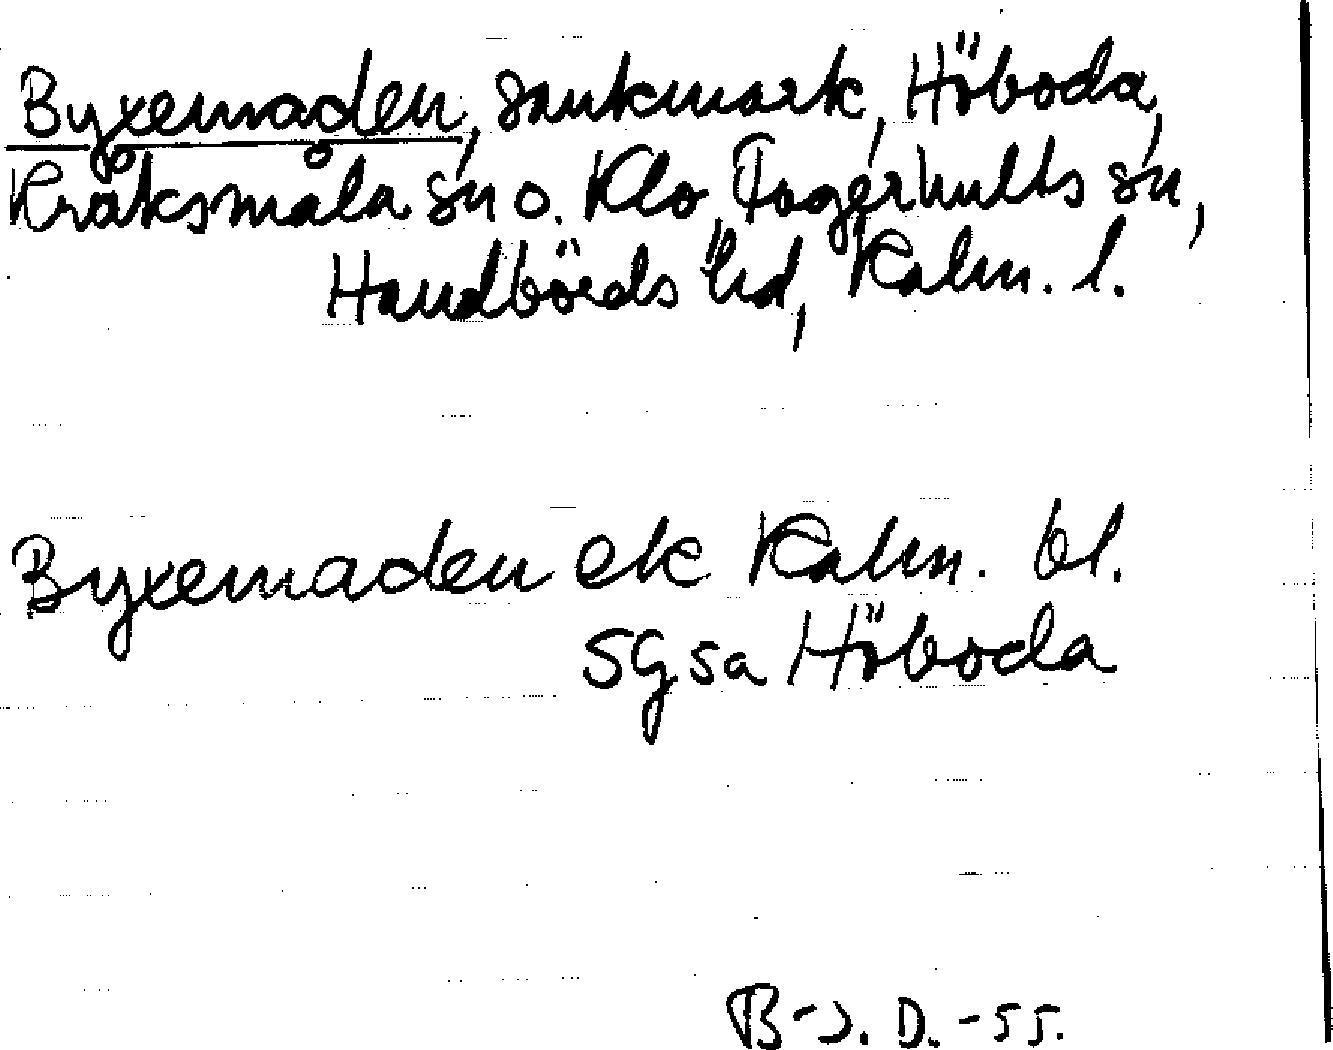 Byxemaden, sankmark, Höboda,
Kråksmåla sn o. Klo, Fagerhults sn,
Handbörds hd, Kalm. l.
Byxemaden ek Kalm. bl.
SGsa Höboda
B-J. D. -55.